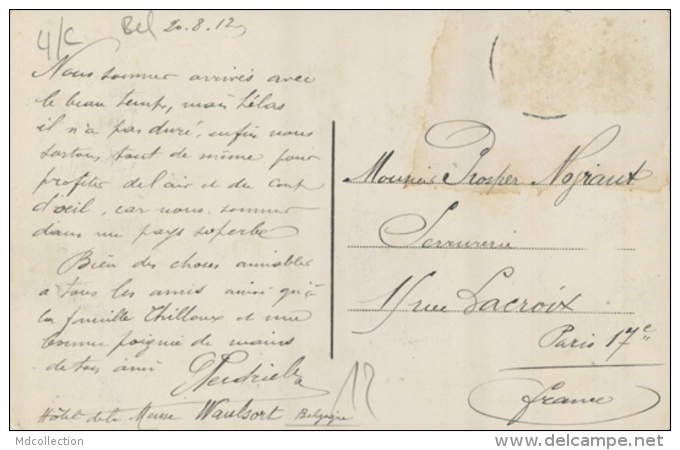 4/C Bel 20.8.12
Nous sommes arrivés avec
le beau temps, mais hélas
il n'a pas duré, enfin nous
sortons tout de même pour
profiter de l'air et du coup
d'oeil, car nous sommes
dans un pays superbe
Bien des choses aimables
à tous les amis ainsi qu'à
la famille Thilloux et une
bonne poignée de mains
de ton ami
Hôtel de la Meuse Waulsort Belgique
Monsieur Prosper
Serrurerie
rue Lacroix
Paris 17e
France
12
Mdcollection
www.delcampe.net